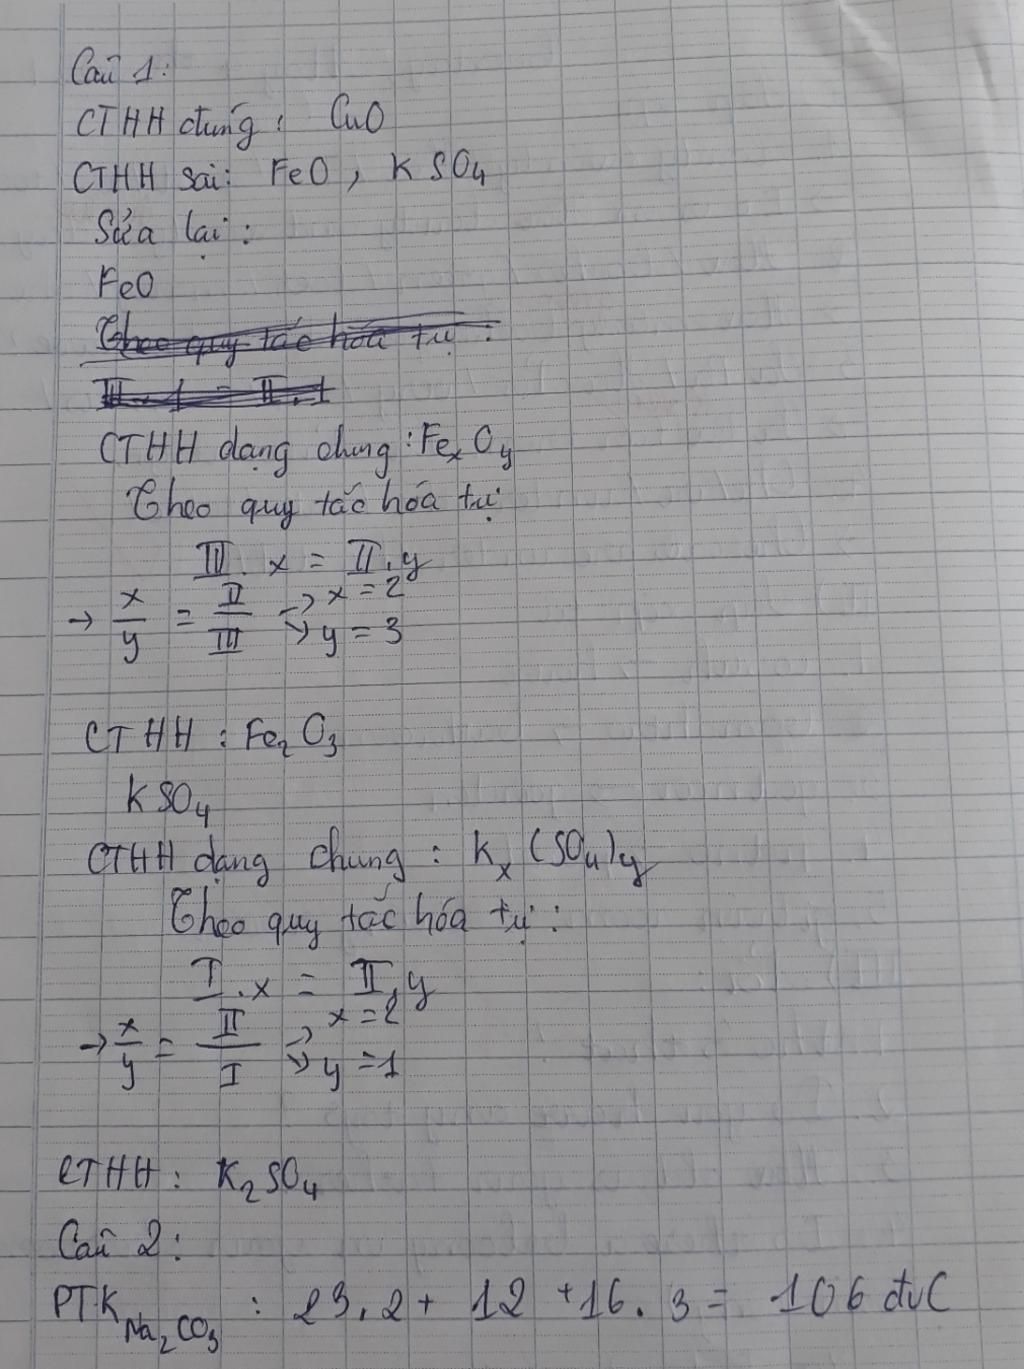 Câu 1:
CTHH đúng: CuO
CTHH sai: FeO, KSO4
Sửa lại:
FeO
Theo quy tắc hóa trị:
III.1 = II.1
CTHH dạng chung: FexOy
Theo quy tắc hóa trị
III. x = II.y
→ x/y = II/III → x = 2
→ y = 3
CTHH: Fe2O3
KSO4
CTHH dạng chung: Kx(SO4)y
Theo quy tắc hóa trị:
I.x = II.y
→ x/y = II/I → x = 2
→ y = 1
CTHH: K2SO4
Câu 2:
PTK Na2CO3: 23.2 + 12 + 16.3 = 106 đvC